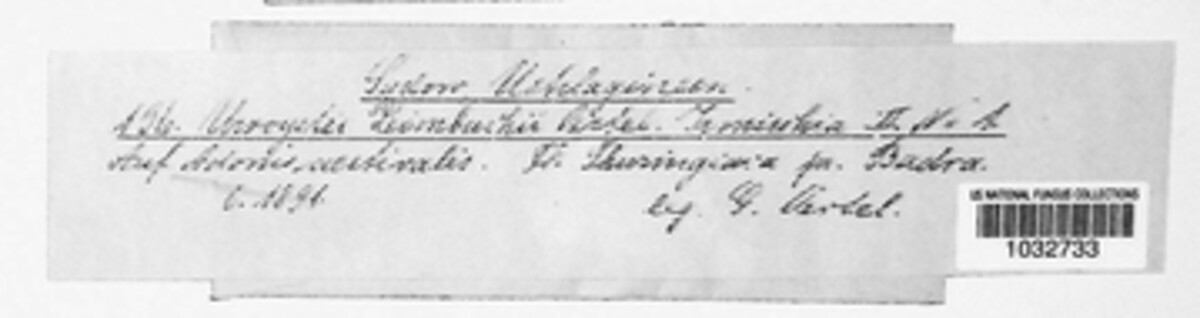 Sydow Ustilagineen.
136. Urocystis Leimbachii Oertel. Irmischia II. No 1
Auf Adonis aestivalis. Thuringia pr. Badra.
1891. leg. G. Oertel.
US NATIONAL FUNGUS COLLECTIONS
1032733